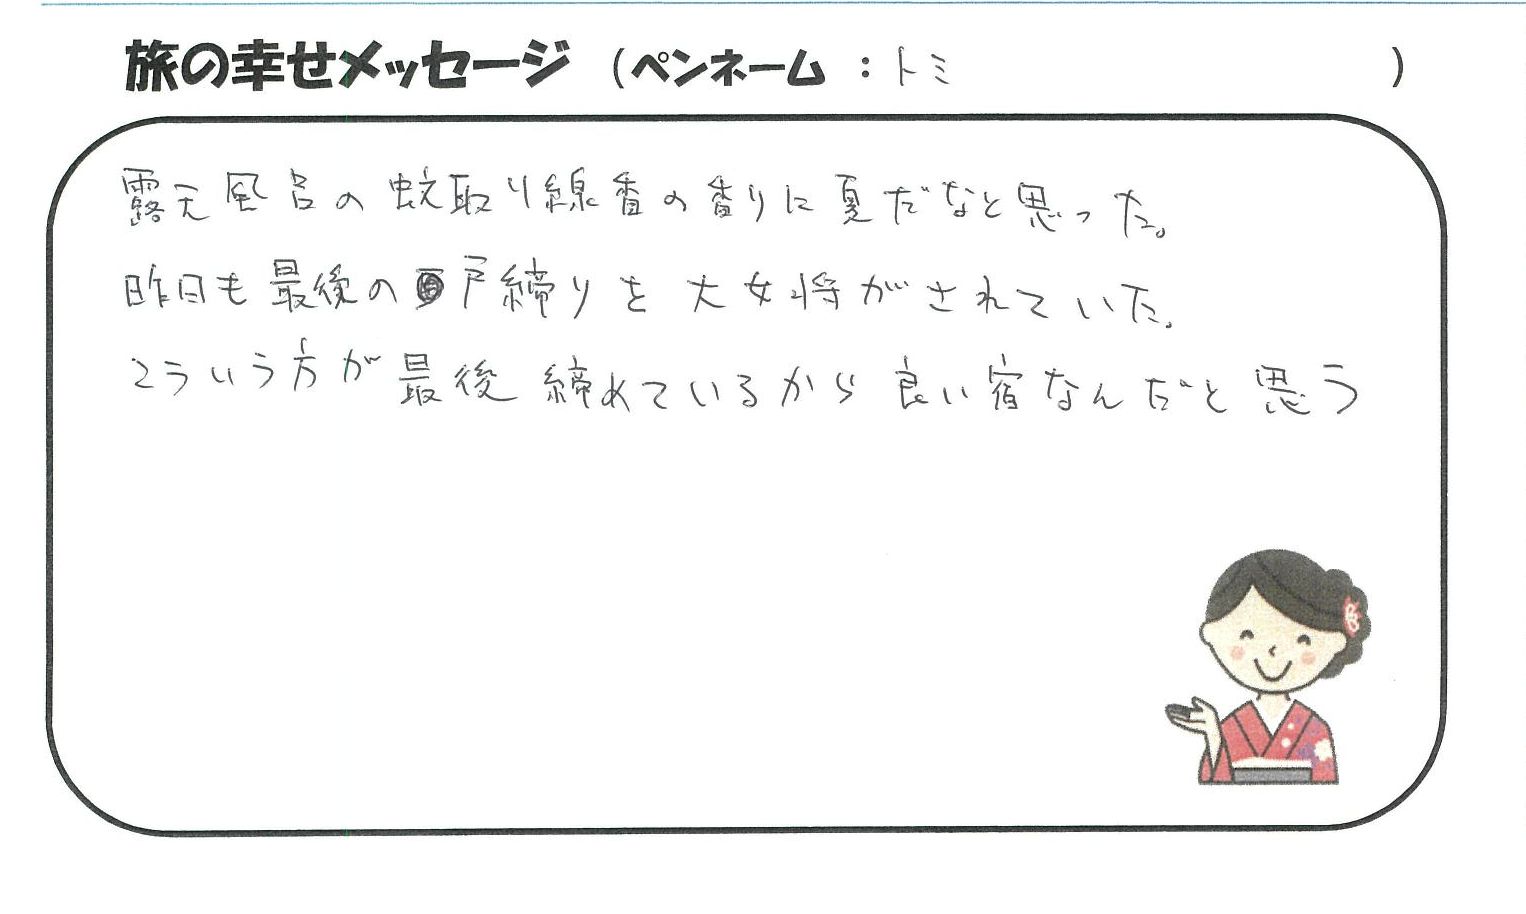 旅の幸せメッセージ （ペンネーム ：トミ ）
露天風呂の蚊取り線香の香りに夏だなと思った。
昨日も最後の戸締りを大女将がされていた。
こういう方が最後締めているから良い宿なんだと思う